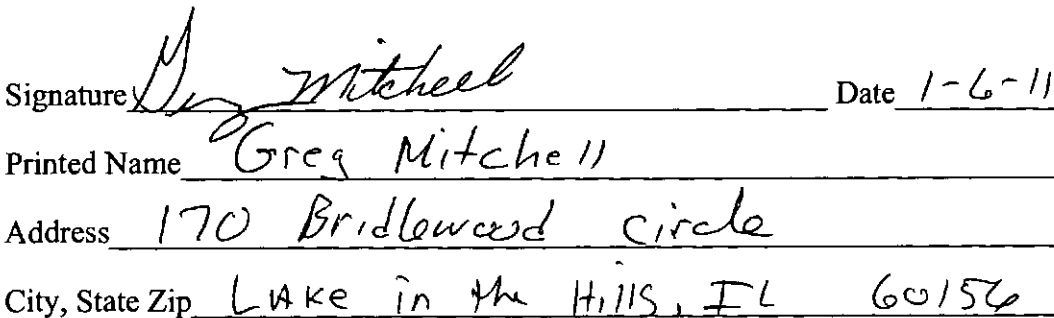 Signature Greg Mitchell Date 1-6-11
Printed Name Greg Mitchell
Address 170 Bridlewood Circle
City, State Zip Lake in the Hills, IL 60156